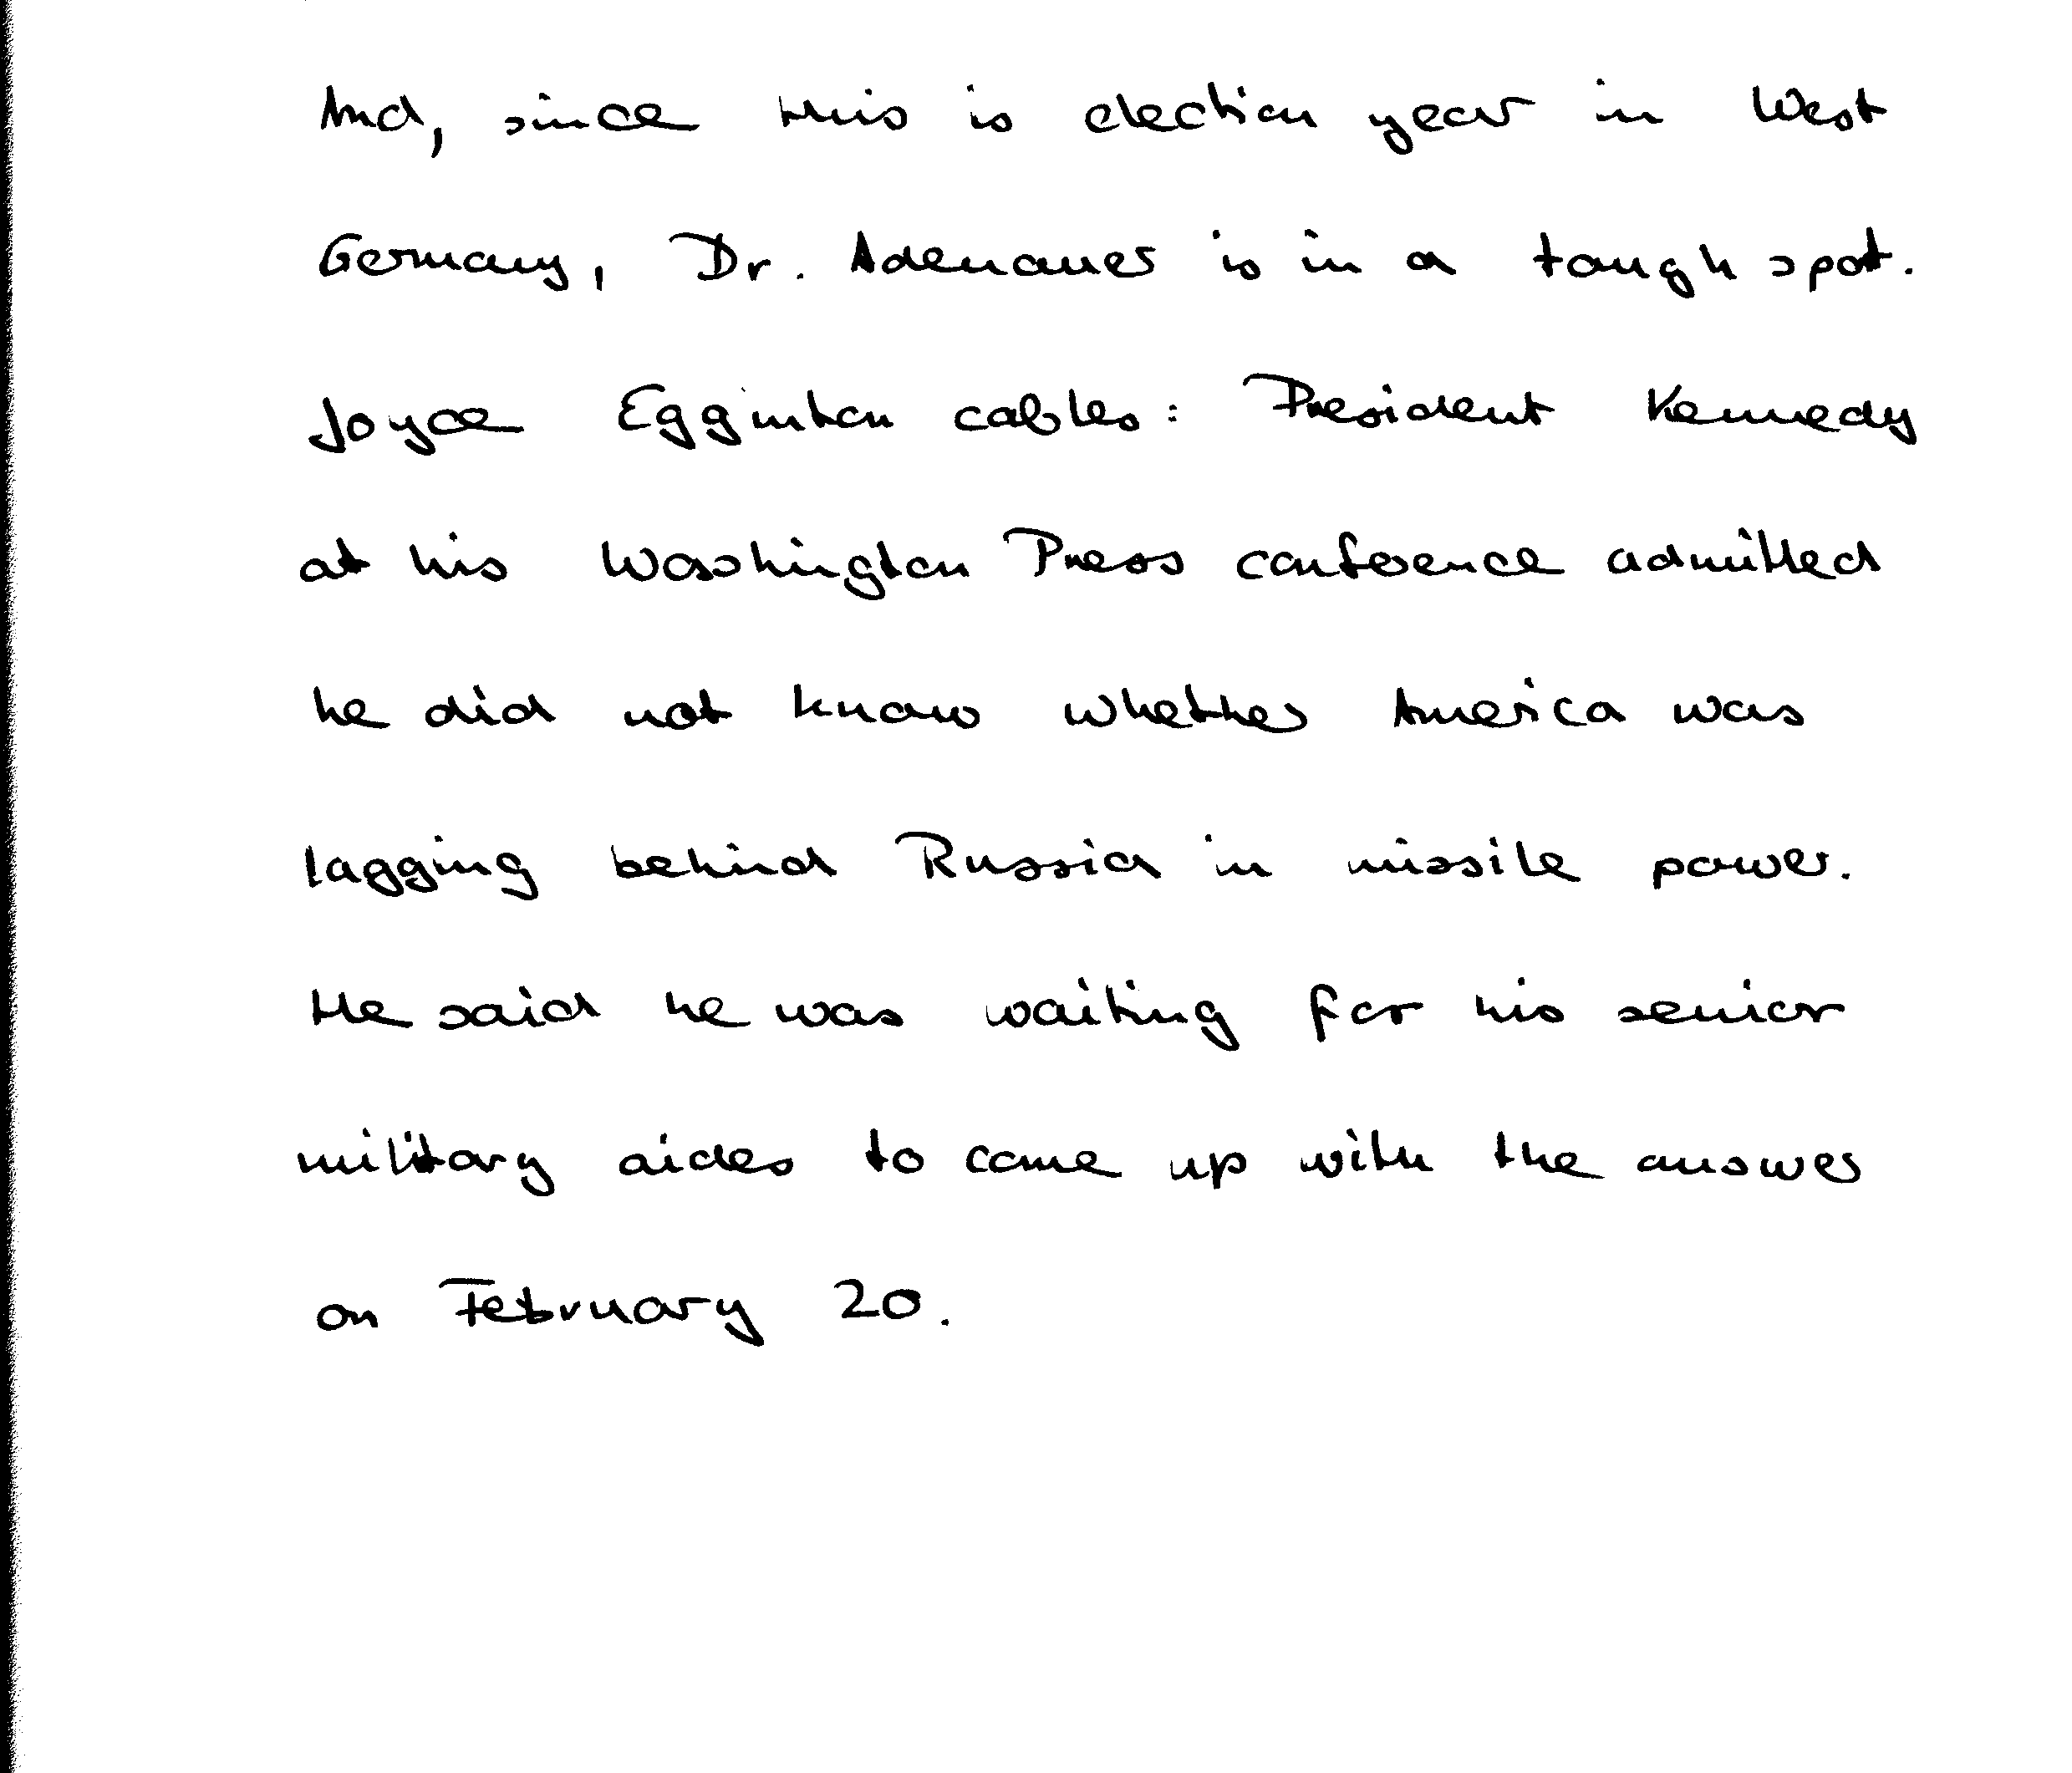 And, since this is election year in West
Germany, Dr. Adenauer is in a tough spot.
Joyce Egginton cables: President Kennedy
at his Washington Press conference admitted
he did not know whether America was
lagging behind Russia in missile power.
He said he was waiting for his senior
military aides to come up with the answer
on February 20.